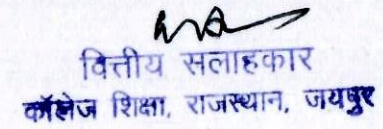 वित्तीय सलाहकार
कॉलेज शिक्षा, राजस्थान, जयपुर